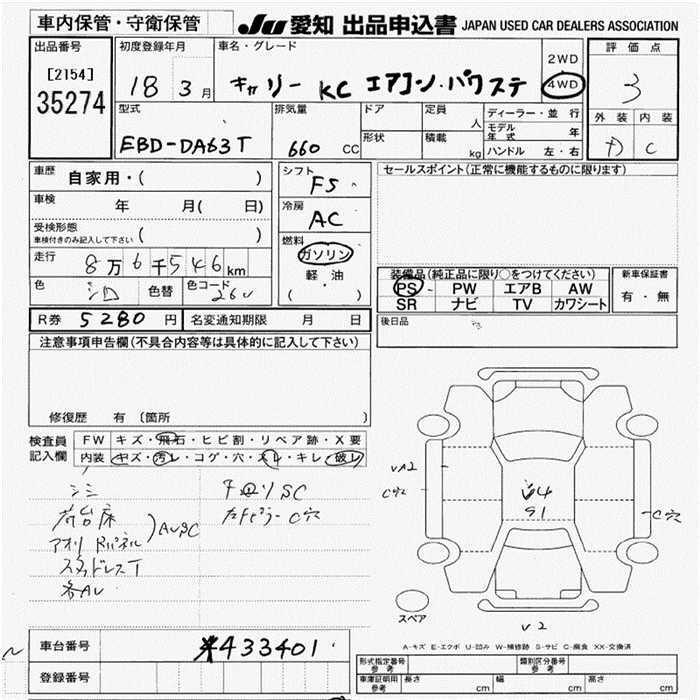 車内保管・守衛保管 JU 愛知 出品申込書 JAPAN USED CAR DEALERS ASSOCIATION
出品番号 初度登録年月 車名・グレード 2WD 評価点
[2154] 18 3月 キャリー KC エアコン・パワステ 4WD 3
35274 型式 排気量 ドア 定員 人 ディーラー・並行 外装 内装
形状 積載 kg モデル年式 年
EBD-DA63T 660 CC ハンドル 左・右 D C
車歴 自家用・( ) シフト F5 セールスポイント(正常に機能するものに限ります)
車検 年 月( 日) 冷房 AC
受検形態
車検付きのみ記入して下さい ( ) 燃料 ガソリン
走行 8万6千546km 軽・油 装備品(純正品に限り○をつけてください) 新車保証書
色 色替 色コード 26U ( ・ ) PS PW エアB AW 有・無
SR ナビ TV カワシート
R券 5280円 名変通知期限 月 日 後日品
注意事項申告欄(不具合内容等は具体的に記入して下さい)
修復歴 有〔箇所
検査員 FW キズ・飛石・ヒビ割・リペア跡・X要
記入欄 内装 キズ・汚レ・コゲ・穴・スレ・キレ・破レ
荷台床
アオリ Rパネル
各AU
UA2
C穴
U4
S1
C穴
スペア
U2
A-キズ E-エクボ U-凹み W-補修跡 S-サビ C-腐食 XX-交換済
車台番号 ※433401
登録番号
形式指定番号 参考 類別区分番号 参考
車庫証明用 参考 長さ cm 幅 cm 高さ cm